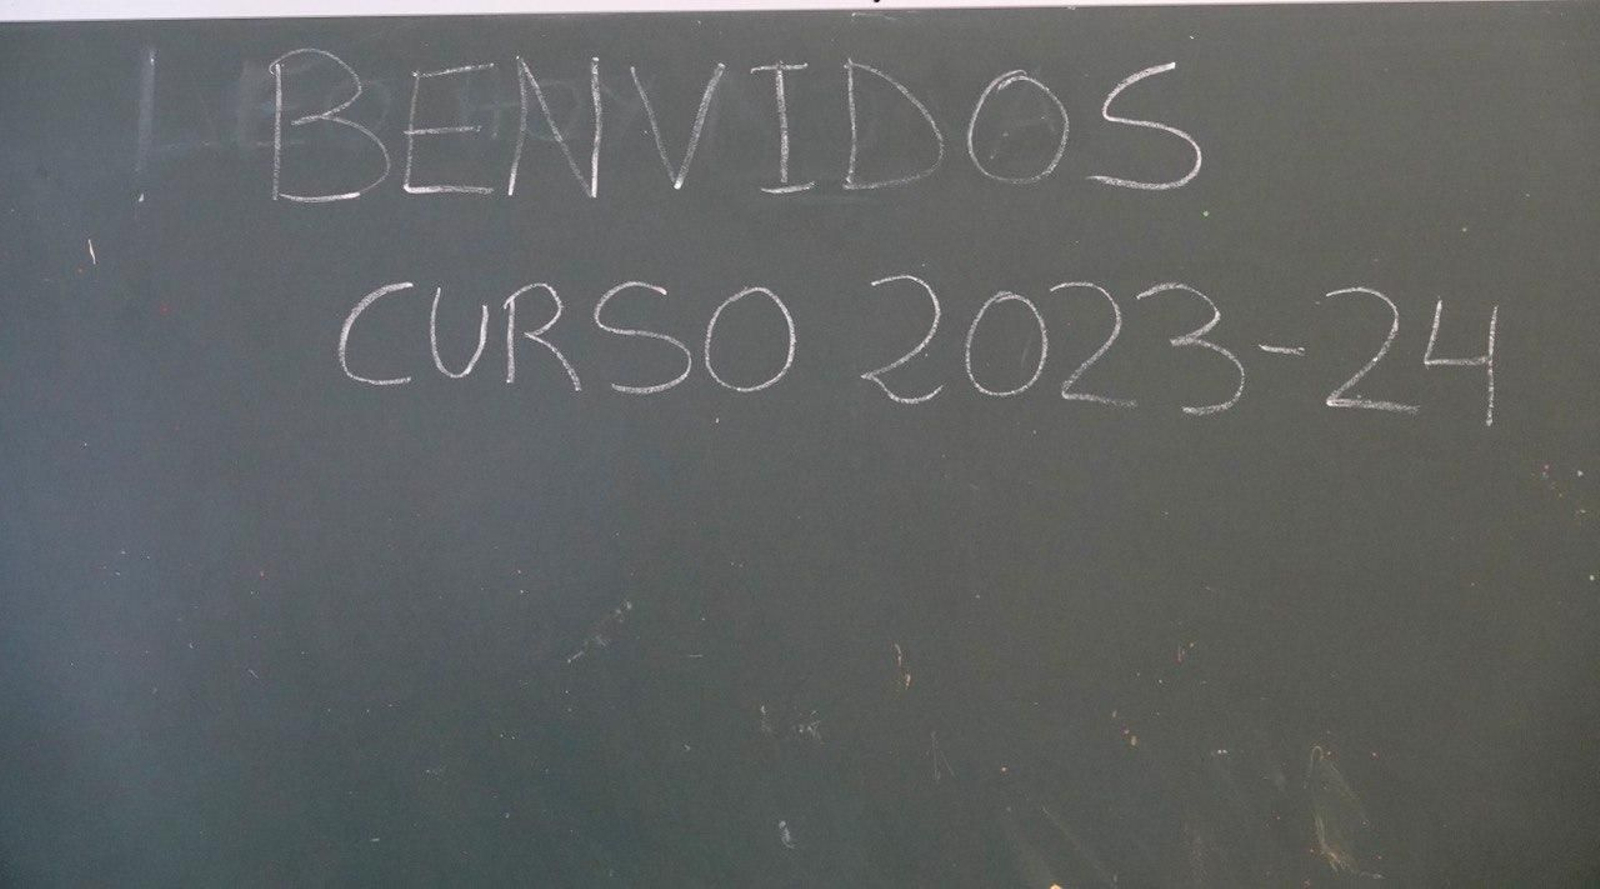 BENVIDOS
CURSO 2023-24